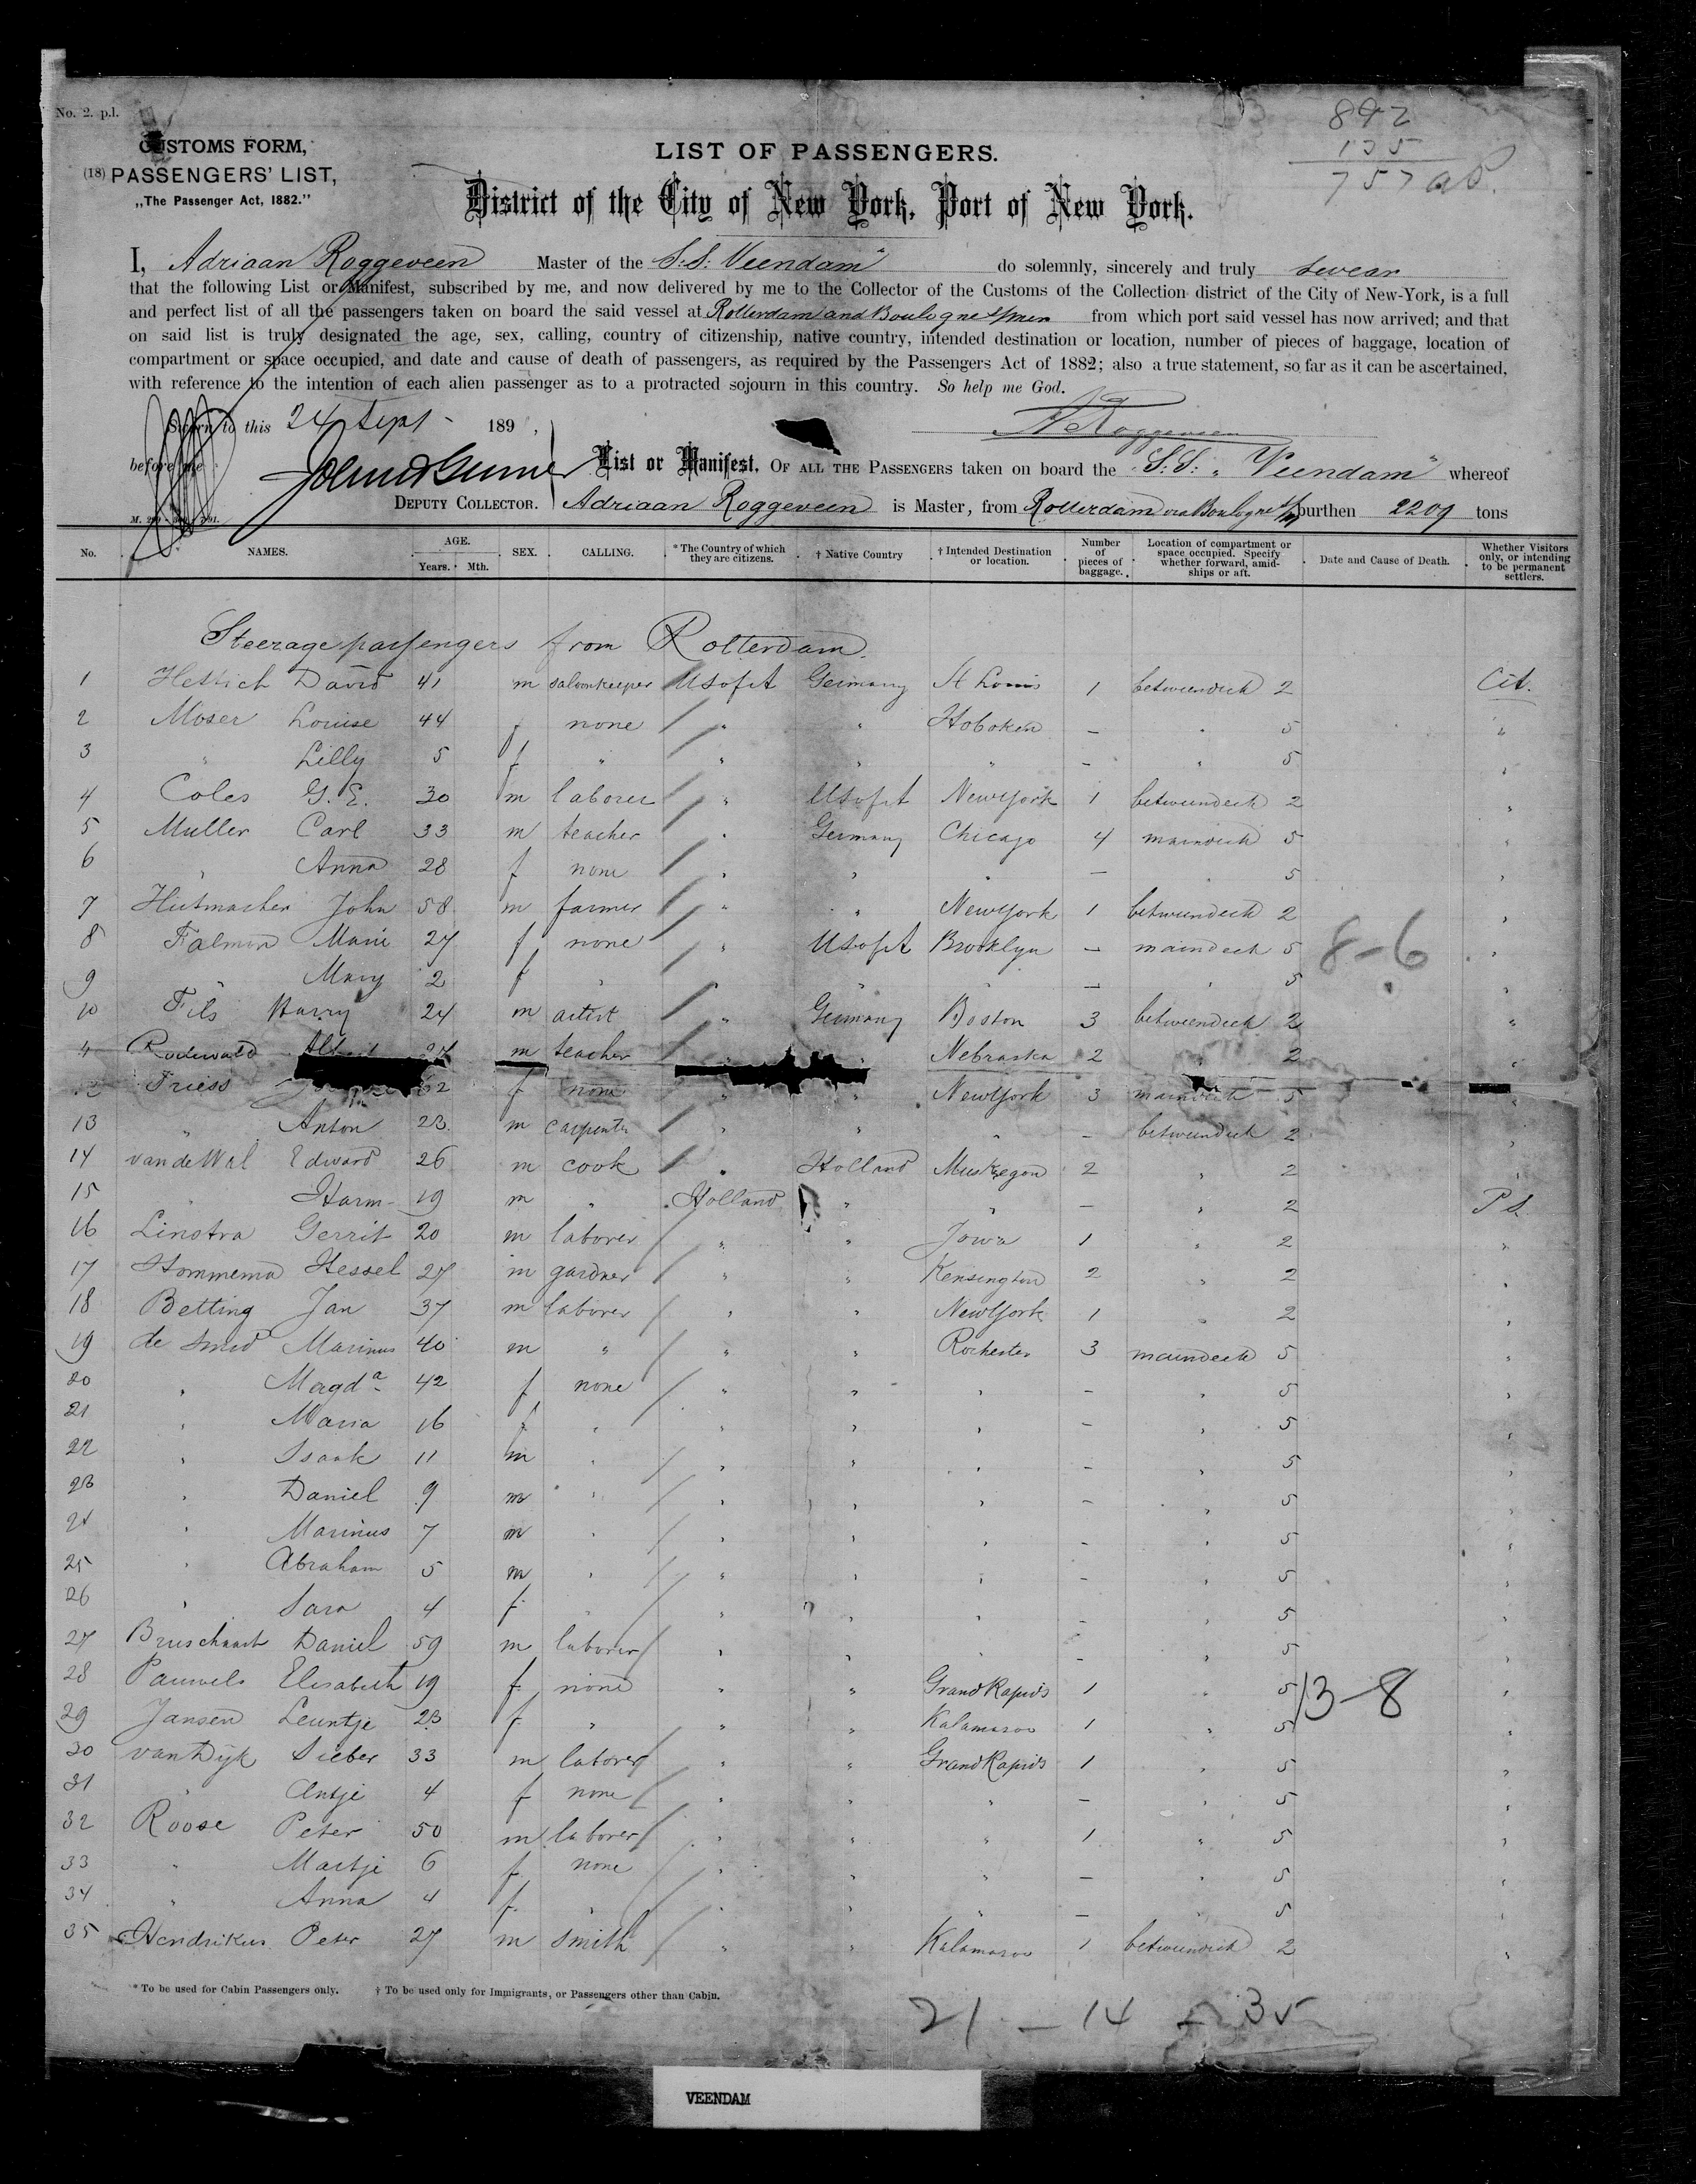 No. 2. p.l.
892
135
757 ad.
CUSTOMS FORM,
(18) PASSENGERS' LIST,
„The Passenger Act, 1882."
LIST OF PASSENGERS.
District of the City of New York, Port of New York.
I, Adriaan Roggeveen Master of the S.S. Veendam" do solemnly, sincerely and truly swear
that the following List or Manifest, subscribed by me, and now delivered by me to the Collector of the Customs of the Collection district of the City of New-York, is a full
and perfect list of all the passengers taken on board the said vessel at Rotterdam and Boulogne s/mer from which port said vessel has now arrived; and that
on said list is truly designated the age, sex, calling, country of citizenship, native country, intended destination or location, number of pieces of baggage, location of
compartment or space occupied, and date and cause of death of passengers, as required by the Passengers Act of 1882; also a true statement, so far as it can be ascertained,
with reference to the intention of each alien passenger as to a protracted sojourn in this country. So help me God.
Sworn to this 24 Sept 189 ,
A Roggeveen
before me
List or Manifest, OF ALL THE PASSENGERS taken on board the S.S. „Veendam" whereof
DEPUTY COLLECTOR. Adriaan Roggeveen is Master, from Rotterdam via Boulogne s/m burthen 2209 tons
No. NAMES. AGE. Years. Mth. SEX. CALLING. * The Country of which they are citizens. † Native Country † Intended Destination or location. Number of pieces of baggage. Location of compartment or space occupied. Specify whether forward, amidships or aft. Date and Cause of Death. Whether Visitors only, or intending to be permanent settlers.
Steerage passengers from Rotterdam.
1 Hettich David 41 m saloonkeeper USofA Germany St Louis 1 betweendeck 2 Cit.
2 Moser Louise 44 f none " " Hoboken - " 5 "
3 " Lilly 5 f " " " " - " 5 "
4 Coles G. E. 30 m laborer " USofA New York 1 betweendeck 2 "
5 Muller Carl 33 m teacher " Germany Chicago 4 maindeck 5 "
6 " Anna 28 f none " " " - " 5 "
7 Hutmacher John 58 m farmer " " New York 1 betweendeck 2 "
8 Falmon Marie 27 f none " USofA Brooklyn - maindeck 5 "
8-6
9 " Mary 2 f " " " " - " 5 "
10 Fils Harry 24 m artist " Germany Boston 3 betweendeck 2 "
11 Rodewald m teacher " " Nebraska 2 " 2 "
12 Friess 62 f none " " New York 3 maindeck 5 "
13 " Anton 23 m carpenter " " " - betweendeck 2 "
14 van de Wal Edward 26 m cook " Holland Muskegon 2 " 2 "
15 " Harm 19 m " Holland " " - " 2 P S.
16 Linstra Gerrit 20 m laborer " " Iowa 1 " 2 "
17 Hommema Hessel 27 m gardner " " Kensington 2 " 2 "
18 Betting Jan 37 m laborer " " New York 1 " 2 "
19 de Smid Marinus 40 m " " " Rochester 3 maindeck 5 "
20 " Magda 42 f none " " " - " 5 "
21 " Maria 16 f " " " " - " 5 "
22 " Isaak 11 m " " " " - " 5 "
23 " Daniel 9 m " " " " - " 5 "
24 " Marinus 7 m " " " " - " 5 "
25 " Abraham 5 m " " " " - " 5 "
26 " Sara 4 f " " " " - " 5 "
27 Daniel 59 m laborer " " " - " 5 "
28 Pauwels Elisabeth 19 f none " " Grand Rapids 1 " 5 "
13-8
29 Jansen Leuntje 23 f " " " Kalamazoo 1 " 5 "
30 van Dijk Sieber 33 m laborer " " Grand Rapids 1 " 5 "
31 " Antje 4 f none " " " - " 5 "
32 Roose Peter 50 m laborer " " " 1 " 5 "
33 " Martje 6 f none " " " - " 5 "
34 " Anna 4 f " " " " - " 5 "
35 Hendrikus Peter 27 m smith " " Kalamazoo 1 betweendeck 2 "
* To be used for Cabin Passengers only. † To be used only for Immigrants, or Passengers other than Cabin.
21 - 14 = 35
VEENDAM